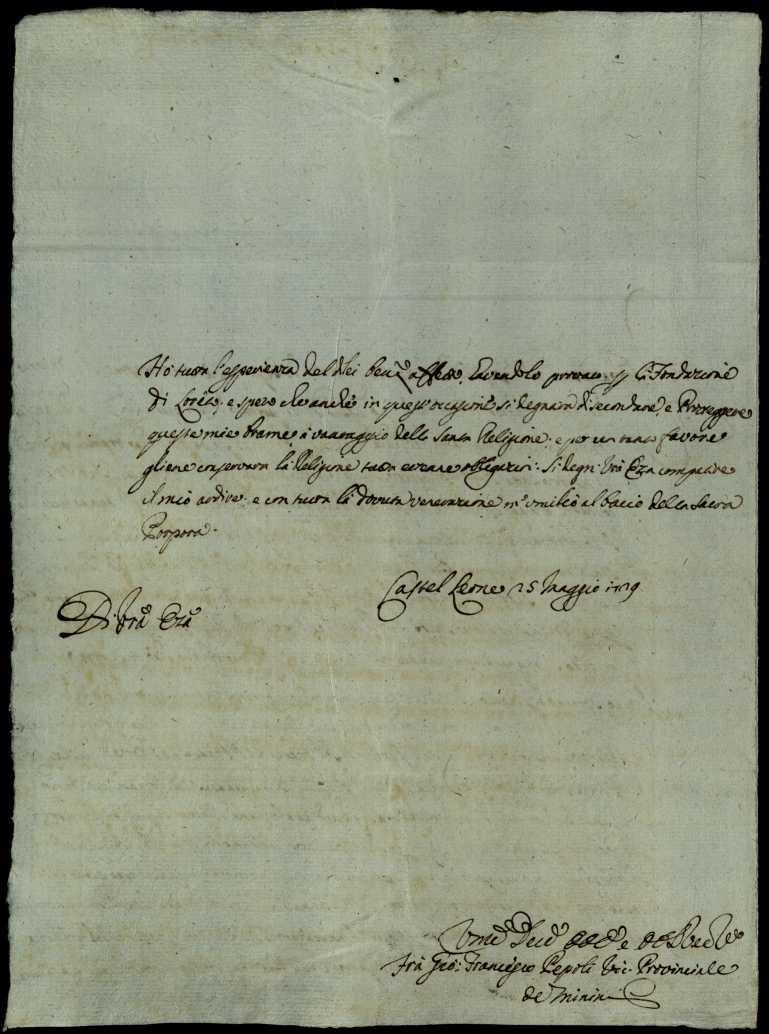 Ho tutta l'esperienza del di lei benig.o affetto, havendolo provato p la Fondazione
di Loreto, e spero che anche in quest'occasione si degnarà di secondare, e Proteggere
queste mie brame à vantaggio della Santa Religione, e per un tanto favore
gliene conservarà la Religione tutta eterne obligazioni. Si degni Vrâ Eza compatire
il mio ardire, e con tutta la dovuta venerazione m'umilio al bacio della Sacra
Porpora.
Castel Leone 25 Maggio
Di Vrâ Eza
Fra Gio: Francesco Pepoli Vic. Provinciale
de Minimi